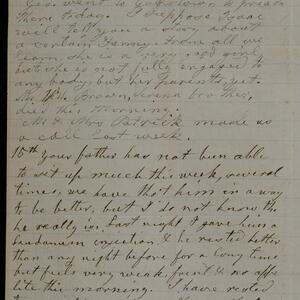 Geo. went to Yorktown to preach
there today. I suppose Isaac
will tell you a story about
a certain Fanny. From all we
learn, she is a very good girl,
but she is not fully engaged to
any body, but her parents, yet.
Wm. Brown, brother,
died this morning.
Mr & Mrs Patrick made us
a call last week.
15th Your father has not been able
to sit up much this week, several
times, we have tho't him in a way
to be better, but I do not know tho
he really is. Last night I gave him a
laudanum injection & he rested better
than any night before for a long time
but feels very weak, faint & no appe
tite this morning. I have rested